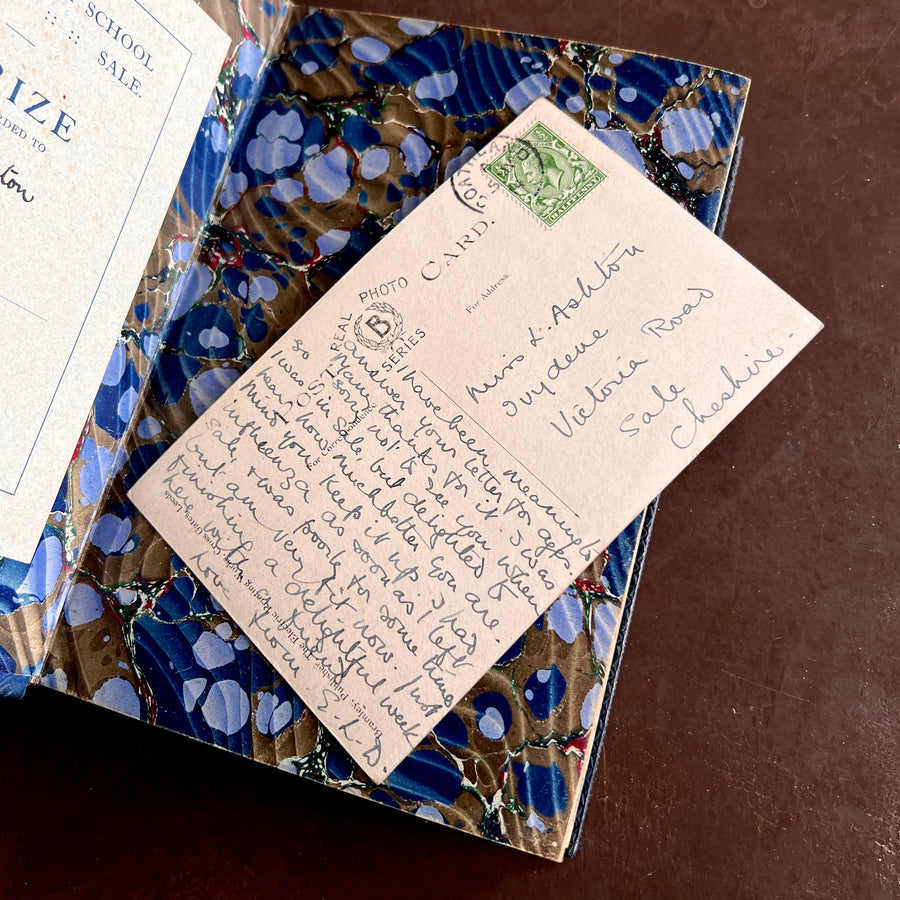 SCHOOL
SALE.
RIZE
RDED TO
ton
HALFPENNY
POST CARD.
REAL PHOTO SERIES
B
For Address
For Correspondence
Miss L. Ashton
Ivydene
Victoria Road
Sale
Cheshire.
I have been meaning to
answer your letter for ages.
Many thanks for it. I was
so sorry not to see you when
I was in Sale, but delighted to
hear how much better you are.
Mind you keep it up. I had
influenza as soon as I left
Sale, & was poorly for some time
but am very fit now. Just
finishing a delightful week
here with
Love from E.L.D.
Bramley, Publisher, The Electric Printing Works, Cross Gates, Leeds